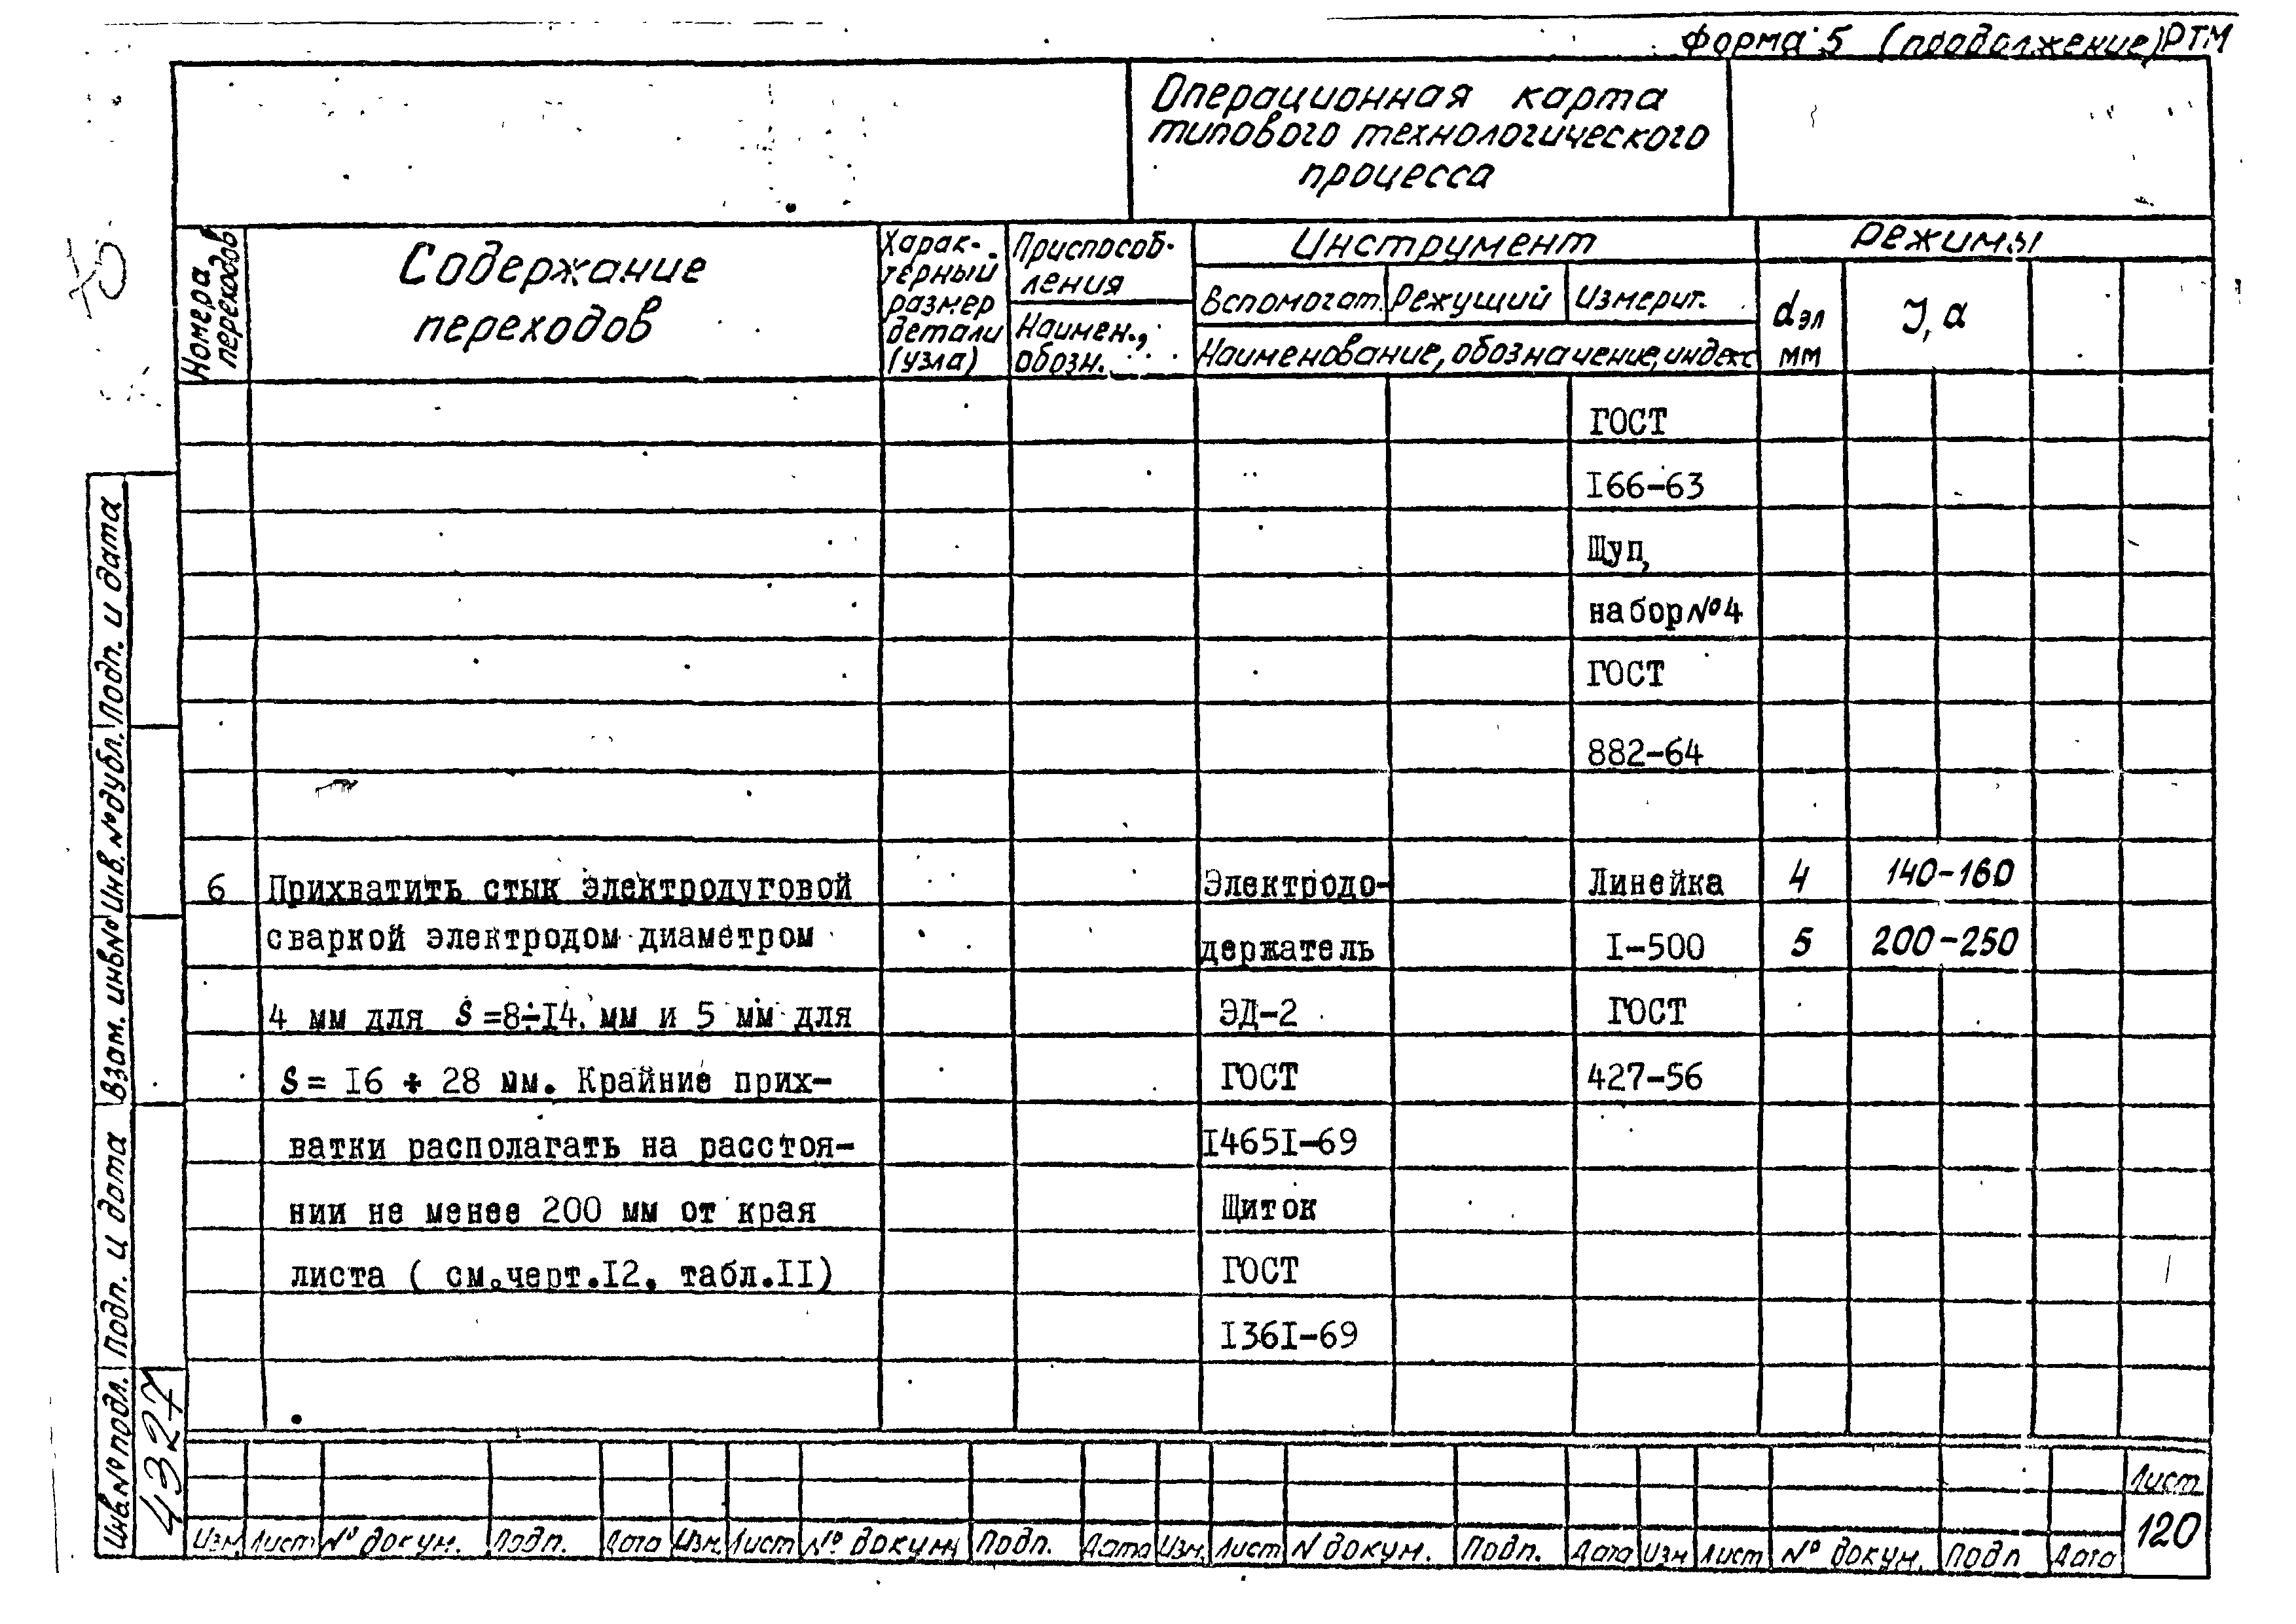 форма 5 (продолжение) РТМ
Операционная карта
типового технологического
процесса
Номера
переходов
Содержание
переходов
Харак-
терный
размер
детали
(узла)
Приспособ-
ления
Наимен.,
обозн.
Инструмент
Вспомогат. Режущий Измерит.
Наименование, обозначение, индекс
Режимы
dэл
мм
J, а
ГОСТ
I66-63
Щуп,
набор №4
ГОСТ
882-64
6 Прихватить стык электродуговой Электродо- Линейка 4 140-160
сваркой электродом диаметром держатель I-500 5 200-250
4 мм для S=8÷I4. мм и 5 мм для ЭД-2 ГОСТ
S = I6 ÷ 28 мм. Крайние прих- ГОСТ 427-56
ватки располагать на расстоя- I465I-69
нии не менее 200 мм от края Щиток
листа ( см.черт.I2, табл.II) ГОСТ
I36I-69
Подп. и дата
Инв. № дубл.
Взам. инв №
Подп. и дата
Инв. № подл.
4327
Изм Лист № докум. Подп. Дата Изм. Лист № докум Подп. Дата Изм. Лист N докум. Подп. Дата Изм Лист № докум. Подп Дата
Лист
120